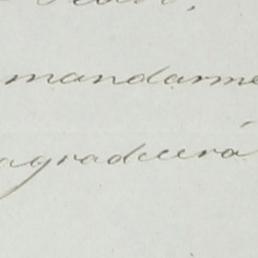 mandarme
agradecerá